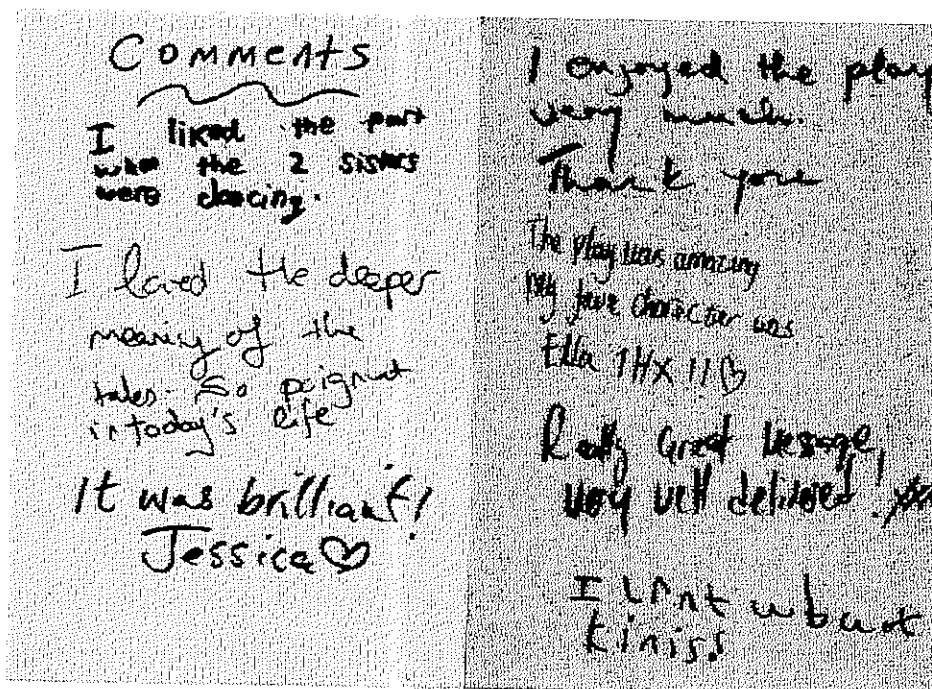 Comments
I liked the part
when the 2 sisters
were dancing.
I loved the deeper
meaning of the
tales. So poignant
in today's life
It was brilliant!
Jessica♡
I enjoyed the play
very much.
Thank you
The play was amazing
My fave character was
Ella THX !!♡
Really Great Message!
very well delivered!
I lrnt ubawt
kinis!